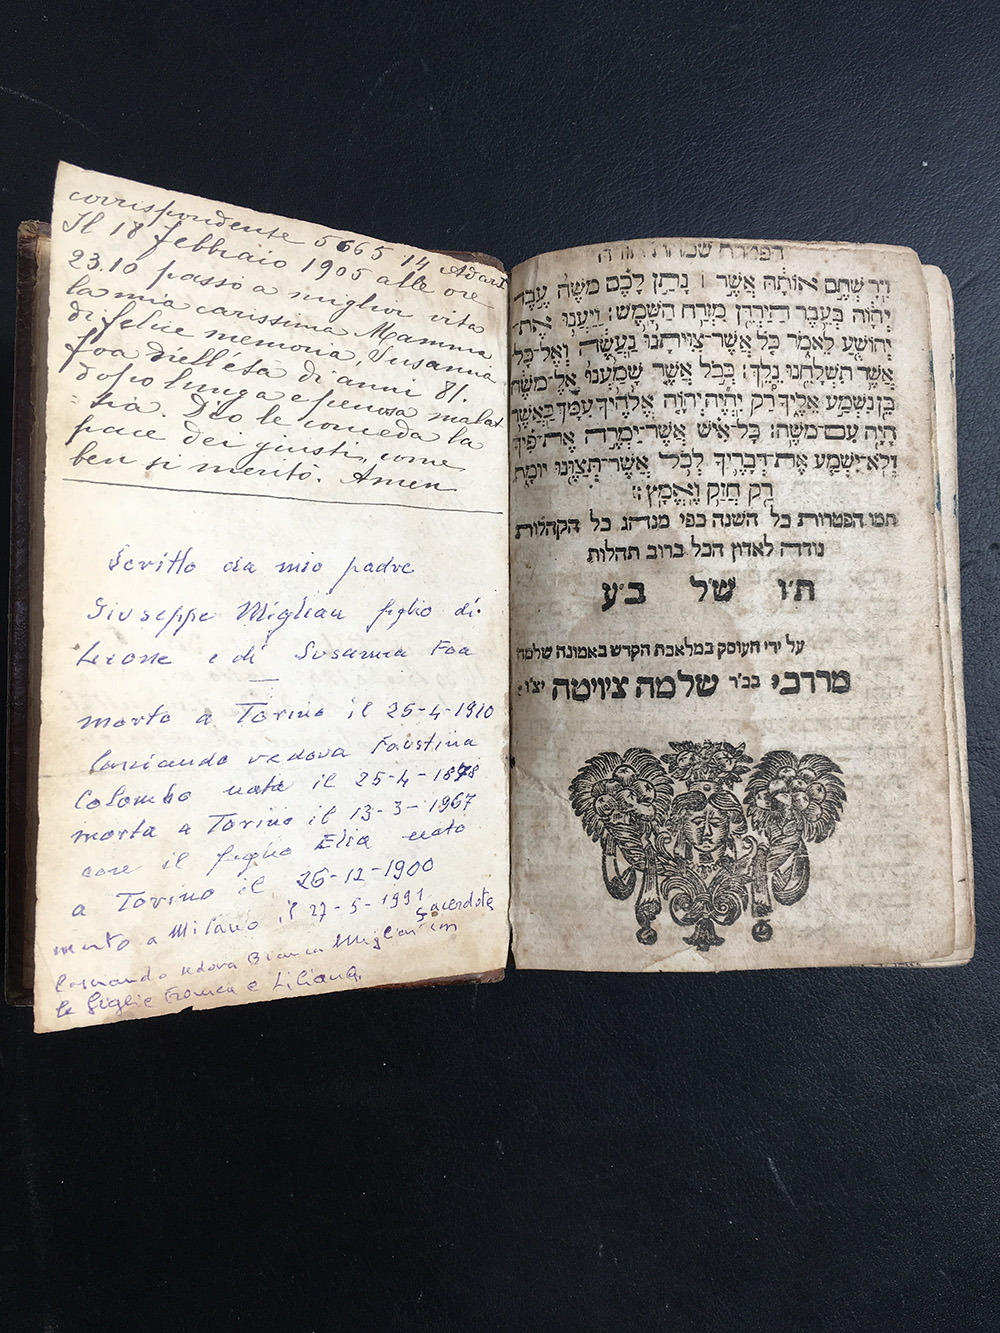 corrispondente 5665 14 Adar I
Il 18 febbraio 1905 alle ore
23.10 passò a miglior vita
la mia carissima Mamma
di felice memoria, Susanna
Foa nell'età di anni 81.
dopo lunga e penosa malat-
-tia. Dio le conceda la
pace dei giusti, come
ben si meritò. Amen
Scritto da mio padre
Giuseppe Migliau figlio di
Leone e di Susanna Foa
morto a Torino il 25-4-1910
lasciando vedova Faustina
Colombo nata il 25-4-1878
morta a Torino il 13-3-1967
con il figlio Elia nato
a Torino il 26-12-1900
morto a Milano il 27-5-1991
Sacerdote
lasciando vedova Bianca Migliau con
le figlie Franca e Liliana.
הפטרת שמחת תורה
וִירִשְׁתֶּם אוֹתָהּ אֲשֶׁר ׀ נָתַן לָכֶם מֹשֶׁה עֶבֶד
יְהוָה בְּעֵבֶר הַיַּרְדֵּן מִזְרַח הַשָּׁמֶשׁ: וַיַּעֲנוּ אֶת־
יְהוֹשֻׁעַ לֵאמֹר כֹּל אֲשֶׁר־צִוִּיתָנוּ נַעֲשֶׂה וְאֶל־כָּל־
אֲשֶׁר תִּשְׁלָחֵנוּ נֵלֵךְ: כְּכֹל אֲשֶׁר שָׁמַעְנוּ אֶל־מֹשֶׁה
כֵּן נִשְׁמַע אֵלֶיךָ רַק יִהְיֶה יְהוָה אֱלֹהֶיךָ עִמָּךְ כַּאֲשֶׁר
הָיָה עִם־מֹשֶׁה: כָּל־אִישׁ אֲשֶׁר־יַמְרֶה אֶת־פִּיךָ
וְלֹא־יִשְׁמַע אֶת־דְּבָרֶיךָ לְכֹל אֲשֶׁר־תְּצַוֶּנּוּ יוּמָת
רַק חֲזַק וֶאֱמָץ:
תמו הפטרות כל השנה כפי מנהג כל הקהלות
נודה לאדון הכל ברוב תהלות
ת׳ו ש׳ל ב׳ע
על ידי העוסק במלאכת הקדש באמונה שלמה
מרדכי בכ׳ר שלמה ציויטה יצ׳ו